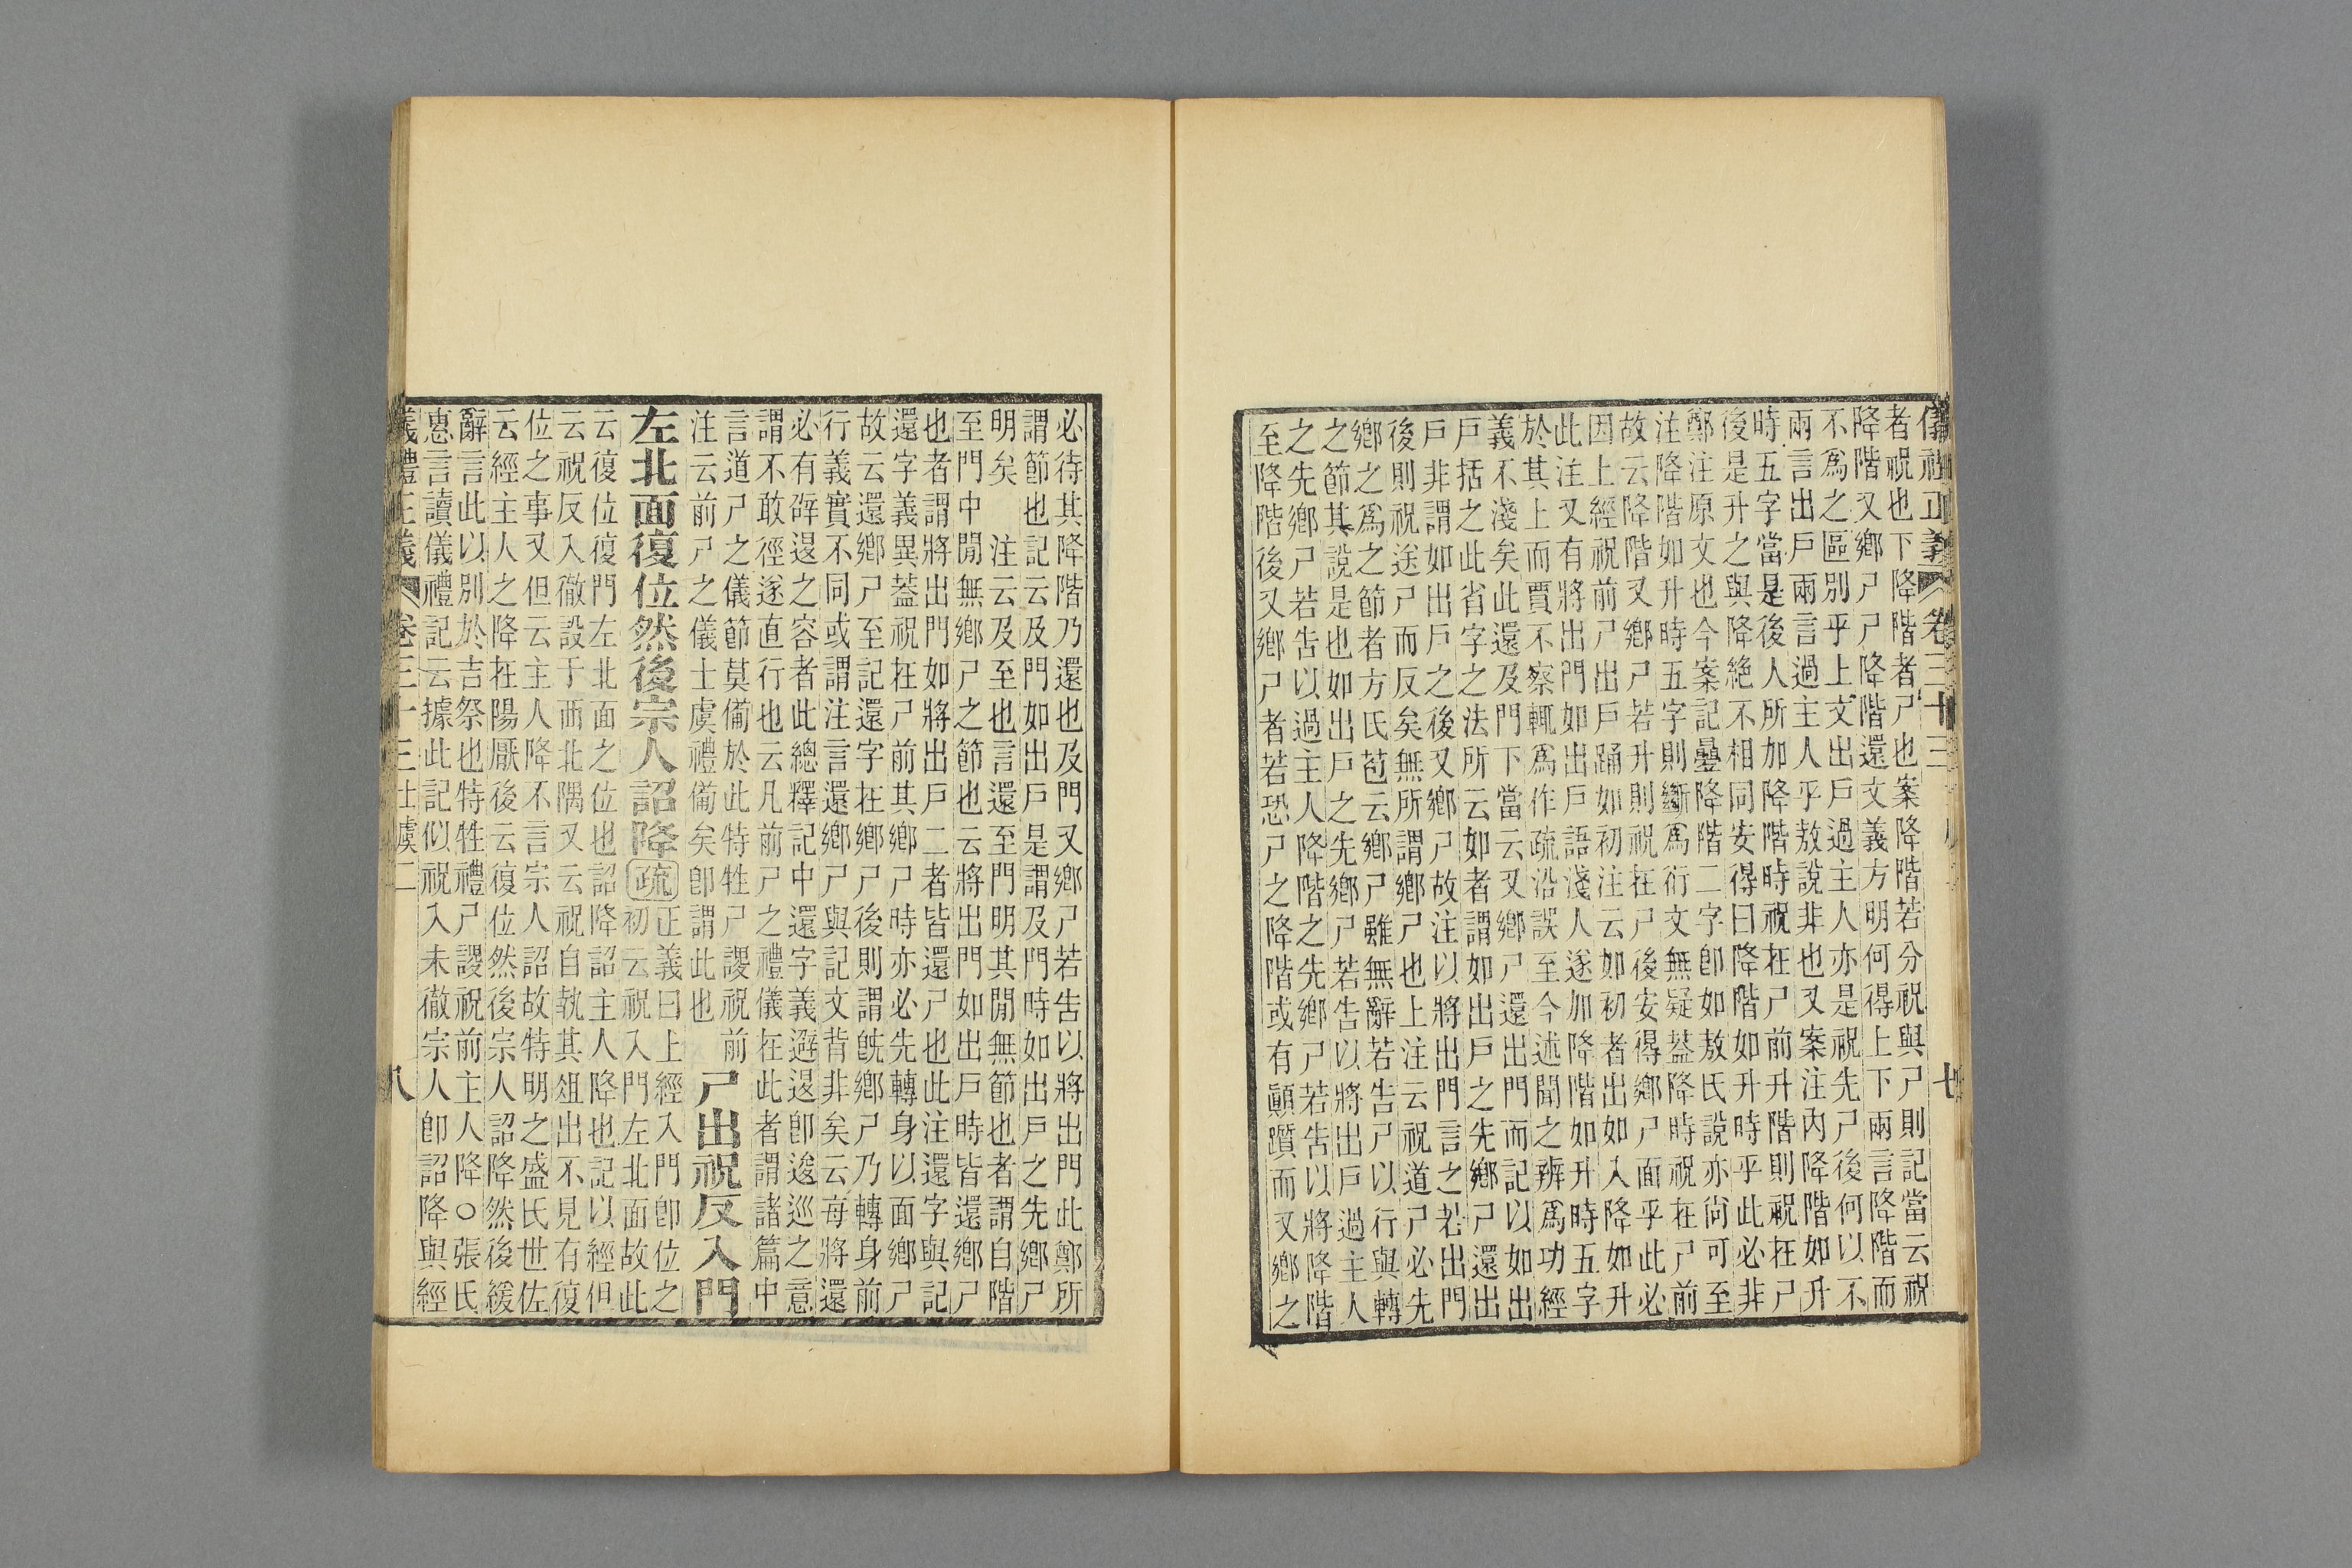 儀禮正義 卷三十三 七
者祝也下降階者尸也案降階若分祝與尸則記當云祝
降階又鄉尸尸降階還文義方明何得上下兩言降階而
不爲之區別乎上文出戶過主人亦是祝先尸後何以不
兩言出戶兩言過主人乎敖說非也又案注內降階如升
時五字當是後人所加降階時祝在尸前升階則祝在尸
後是升之與降絕不相同安得曰降階如升時乎此必非
鄭注原文也今案記疊降階二字卽如敖氏說亦尙可至
注降階如升時五字則斷爲衍文無疑葢降時祝在尸前
故云降階又鄉尸若升則祝在尸後安得鄉尸面乎此必
因上經祝前尸出戶踊如初注云如初者出如入降如升
此注又有將出門如出戶語淺人遂加降階如升時五字
於其上而賈不察輒爲作疏沿誤至今述聞之辨爲功經
義不淺矣此還及門下當云又鄉尸還出門而記以如出
戶括之此省字之法所云如者謂如出戶之先鄉尸還出
戶非謂如出戶之後又鄉尸故注以將出門言之若出門
後則祝送尸而反矣無所謂鄉尸也上注云祝道尸必先
鄉之爲之節者方氏苞云鄉尸雖無辭若告尸以行與轉
之節其說是也如出戶之先鄉尸若告以將出戶過主人
之先鄉尸若告以過主人降階之先鄉尸若告以將降階
至降階後又鄉尸者若恐尸之降階或有顚躓而又鄉之
必待其降階乃還也及門又鄉尸若告以將出門此鄭所
謂節也記云及門如出戶是謂及門時如出戶之先鄉尸
明矣 注云及至也言還至門明其閒無節也者謂自階
至門中閒無鄉尸之節也云將出門如出戶時皆還鄉尸
也者謂將出門如將出戶二者皆還尸也此注還字與記
還字義異葢祝在尸前其鄉尸時亦必先轉身以面鄉尸
故云還鄉尸至記還字在鄉尸後則謂旣鄉尸乃轉身前
行義實不同或謂注言還鄉尸與記文背非矣云每將還
必有辟退之容者此總釋記中還字義避退卽逡巡之意
謂不敢徑遂直行也云凡前尸之禮儀在此者謂諸篇中
言道尸之儀節莫備於此特牲尸謖祝前
注云前尸之儀士虞禮備矣卽謂此也 尸出祝反入門
左北面復位然後宗人詔降 疏 正義曰上經入門卽位之
初云祝入門左北面故此
云復位復門左北面之位也詔降詔主人降也記以經但
云祝反入徹設于西北隅又云祝自執其俎出不見有復
位之事又但云主人降不言宗人詔故特明之盛氏世佐
云經主人之降在陽厭後云復位然後宗人詔降然後緩
辭言此以別於吉祭也特牲禮尸謖祝前主人降○張氏
惠言讀儀禮記云據此記似祝入未徹宗人卽詔降與經
儀禮正義 卷三十三 士虞二 八